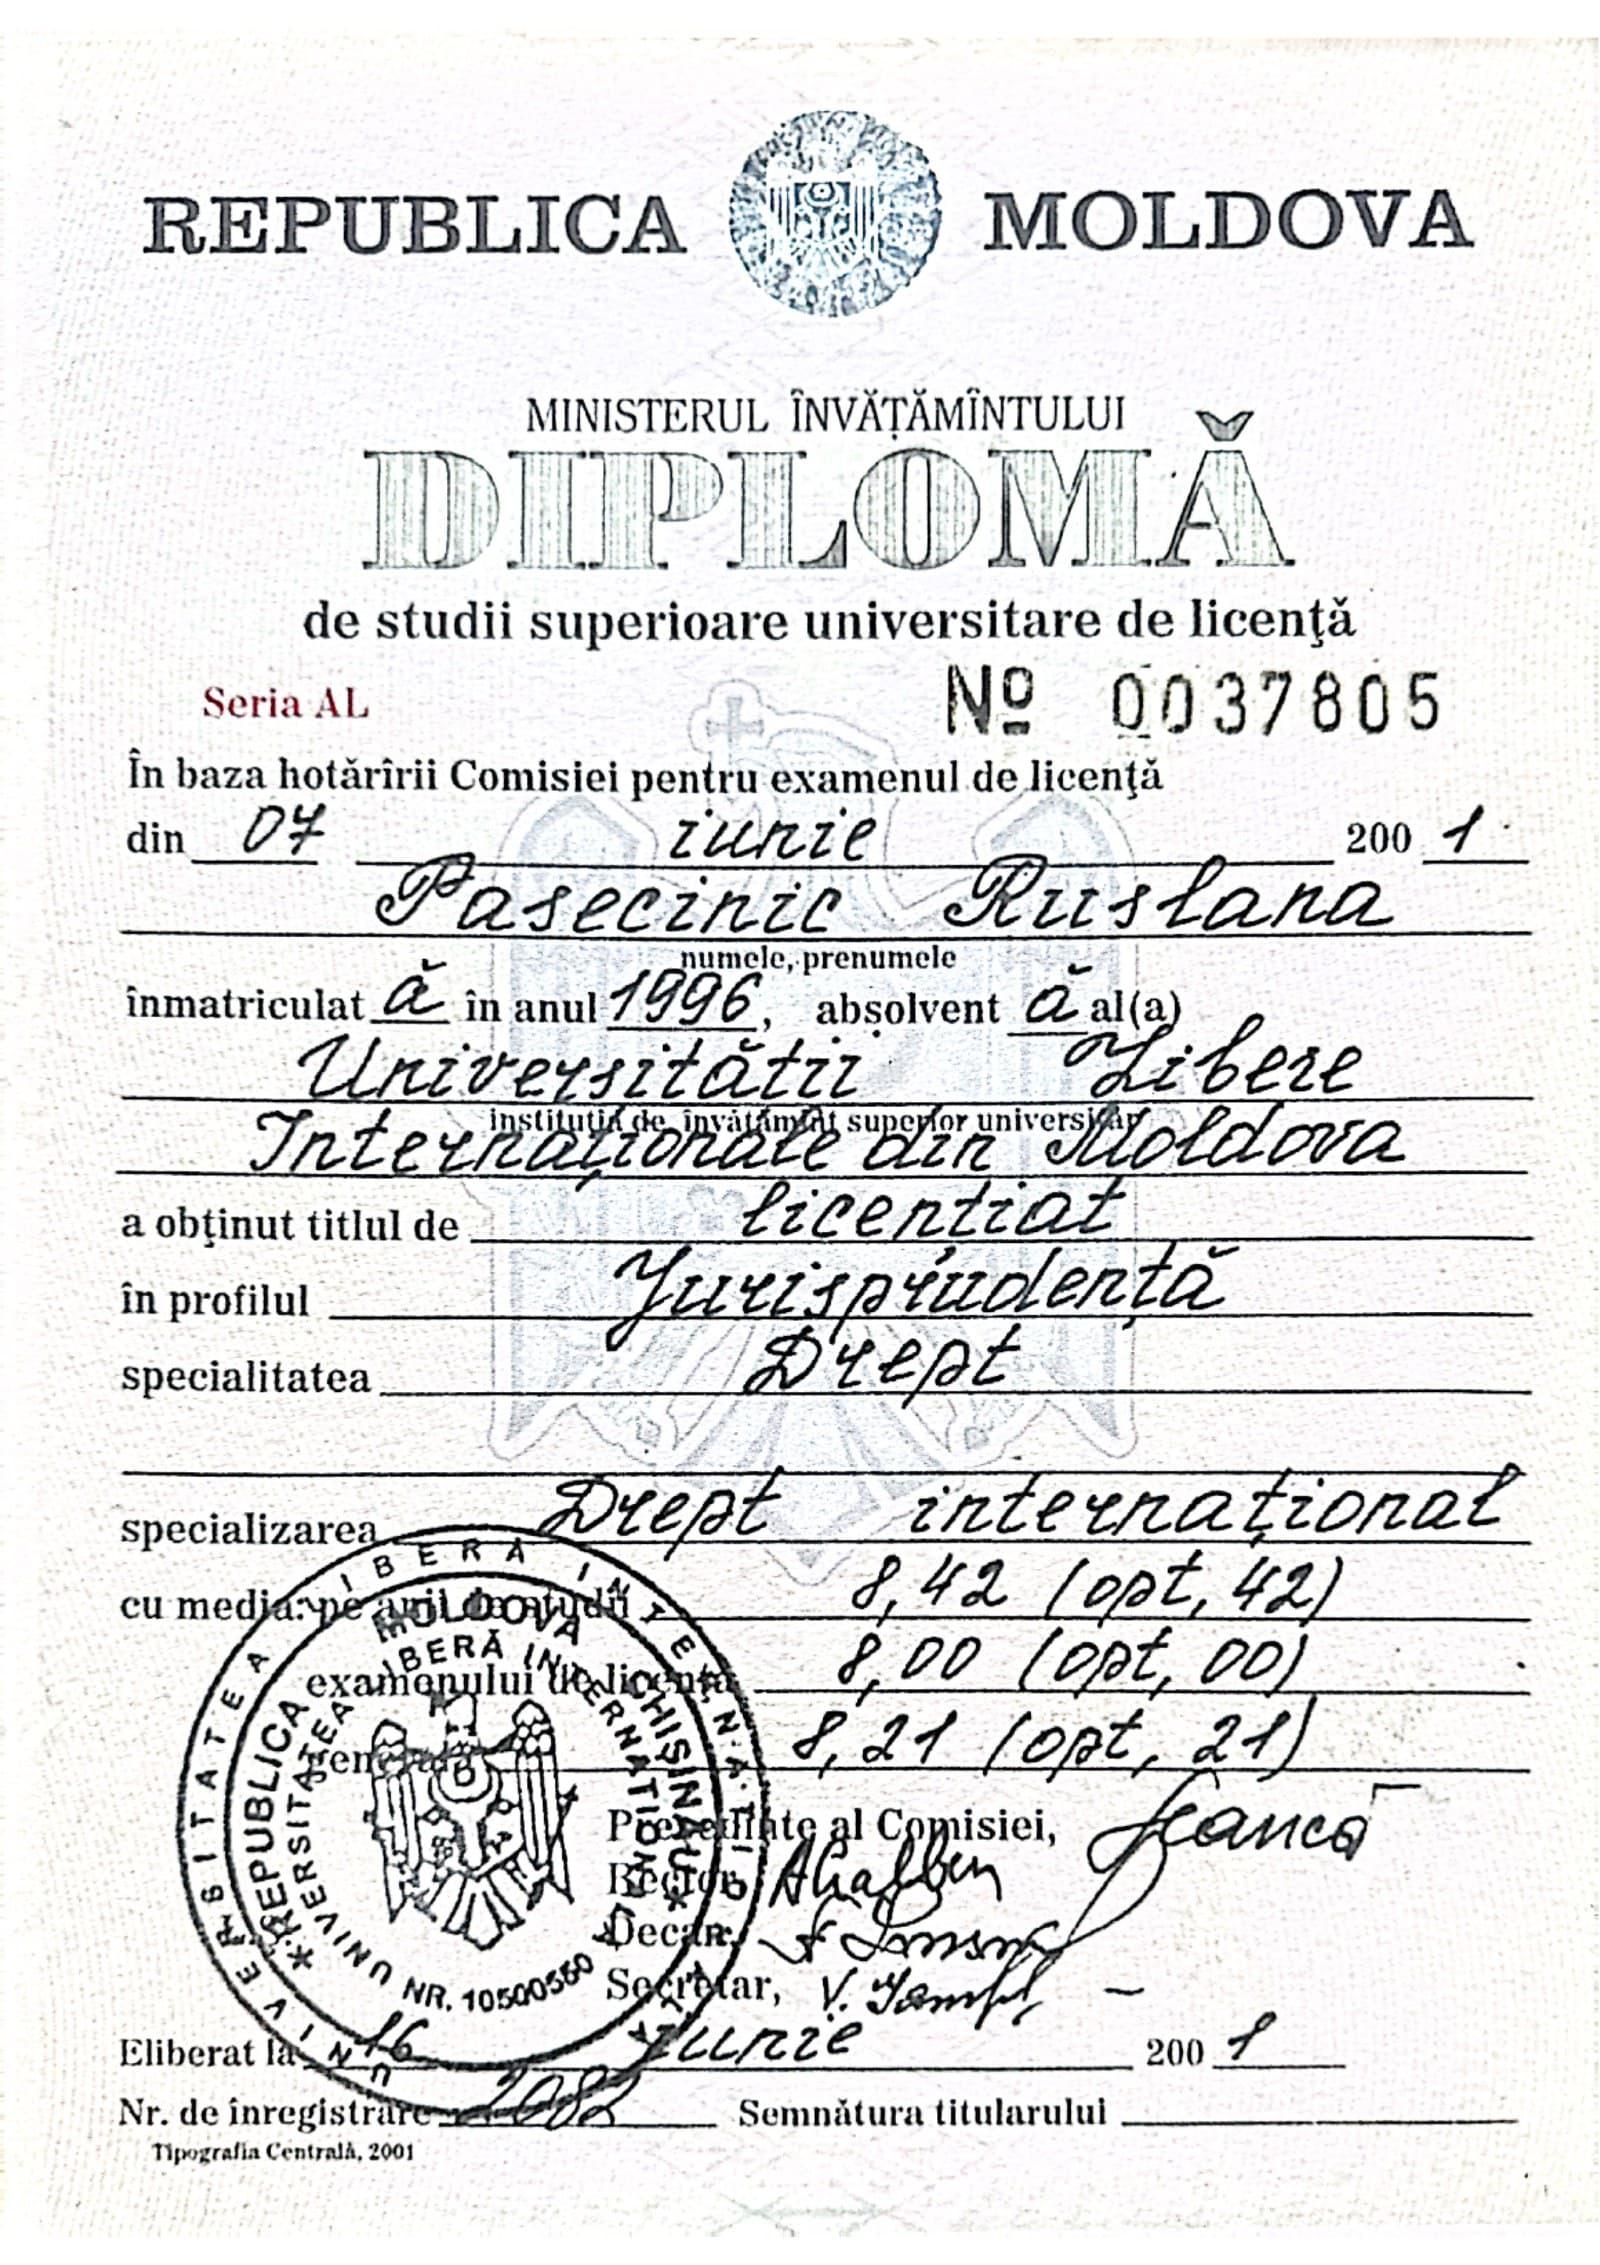 REPUBLICA MOLDOVA
MINISTERUL ÎNVĂȚĂMÎNTULUI
DIPLOMĂ
de studii superioare universitare de licenţă
Seria AL № 0037805
În baza hotărîrii Comisiei pentru examenul de licenţă
din 07 iunie 2001
Pasecinic Ruslana
numele, prenumele
înmatriculat ă în anul 1996, absolvent ă al(a)
Universității Libere
instituţia de învăţămînt superior universitar
Internaționale din Moldova
a obţinut titlul de licențiat
în profilul Jurisprudență
specialitatea Drept
specializarea Drept internațional
cu media: pe anii de studii 8,42 (opt, 42)
examenului de licenţă 8,00 (opt, 00)
generală 8,21 (opt, 21)
Preşedinte al Comisiei,
Rector,
Decan,
Secretar, V.
Eliberat la 16 iunie 2001
Nr. de înregistrare 2082 Semnătura titularului
Tipografia Centrală, 2001
UNIVERSITATEA LIBERĂ INTERNAȚIONALĂ
REPUBLICA MOLDOVA CHIȘINĂU
UNIVERSITATEA LIBERĂ INTERNAȚIONALĂ
NR. 10500560